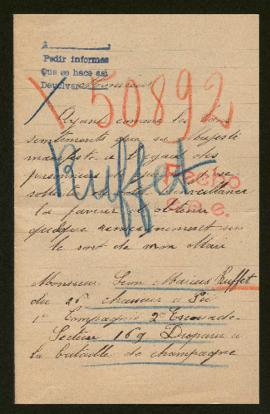 A
Pedir informes
Que se hace asi
Devolver
50892
Ayant connu les bons
sentiments que sa Majesté
manifeste à l'égard des
Ruffet
Hecho
la faveur d'obtenir
quelque renseignement sur
le sort de mon Mari
Monsieur Leon Marius Ruffet
du 26 chasseur à Pié
1e Compagnie 2e Escouade
Section 169 Disparu à
la bataille de champagne